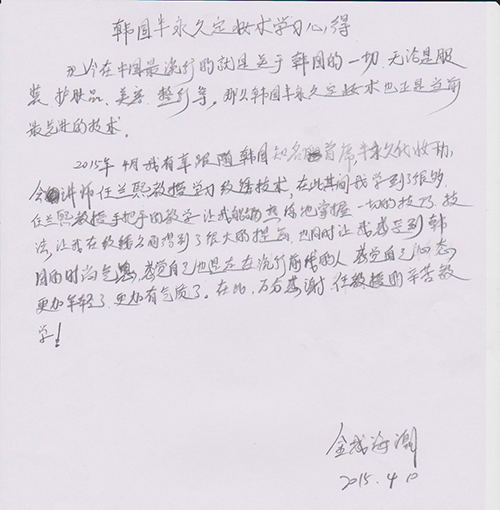 韩国半永久定妆术学习心得
现今在中国最流行的就是关于韩国的一切,无论是服
装、护肤品、美容、整形等。那么韩国半永久定妆术也正是当前
最先进的技术。
2015年4月我有幸跟随韩国知名首席,半永久化妆协
会讲师任兰熙教授学习纹绣技术,在此其间我学到了很多
任兰熙教授手把手的教学让我能够熟练地掌握一切的技巧、技
法,让我在纹绣方面得到了很大的提高,也同时让我感受到韩
国的时尚气息,感觉自己也是走在流行前线的人,感觉自己心态
更加年轻了,更加有气质了。在此,万分感谢任教授的辛苦教
学!
金 海潮
2015.4.10